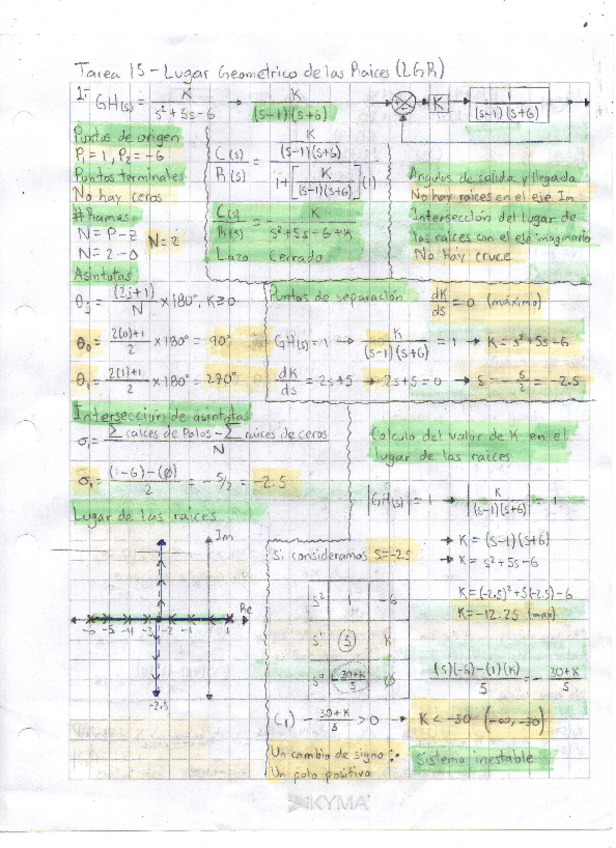 Tarea 15 - Lugar Geométrico de las Raíces (LGR)
1.- GH(s) = K / (s² + 5s - 6) → K / ((s-1)(s+6))
K
1 / ((s-1)(s+6))
Puntos de origen
P₁ = 1, P₂ = -6
Puntos terminales
No hay ceros
#Ramas
N = P - Z
N = 2 - 0
N = 2
C(s)/R(s) = (K / ((s-1)(s+6))) / (1 + [K / ((s-1)(s+6))](1))
C(s)/R(s) = K / (s² + 5s - 6 + K)
Lazo Cerrado
Angulos de salida y llegada
No hay raices en el eje Im
Intersección del lugar de
las raices con el eje imaginario
No hay cruce
Asíntotas
θj = (2j+1)/N × 180°, K ≥ 0
θ₀ = (2(0)+1)/2 × 180° = 90°
θ₁ = (2(1)+1)/2 × 180° = 270°
Puntos de separación dK/ds = 0 (máximo)
GH(s) = 1 → K / ((s-1)(s+6)) = 1 → K = s² + 5s - 6
dK/ds = 2s+5 → 2s+5 = 0 → s = -5/2 = -2.5
Intersección de asíntotas
σ₁ = (∑ raices de Polos - ∑ raices de ceros) / N
σ₁ = ((1-6) - (0)) / 2 = -5/2 = -2.5
Calculo del valor de K en el
lugar de las raices
|GH(s)| = 1 → |K / ((s-1)(s+6))| = 1
→ K = (s-1)(s+6)
→ K = s² + 5s - 6
Lugar de las raices
Im
Re
-6 -5 -4 -3 -2 -1 1
-2.5
Si consideramos s = -2.5
K = (-2.5)² + 5(-2.5) - 6
K = -12.25 (max)
s² 1 -6
s¹ 5 K
s⁰ -(30+K)/5 0
((5)(-6) - (1)(K)) / 5 = -(30+K)/5
C₁) -(30+K)/5 > 0 → K < -30 (-∞, -30)
Un cambio de signo ∴
Un polo positivo
Sistema inestable
KYMA